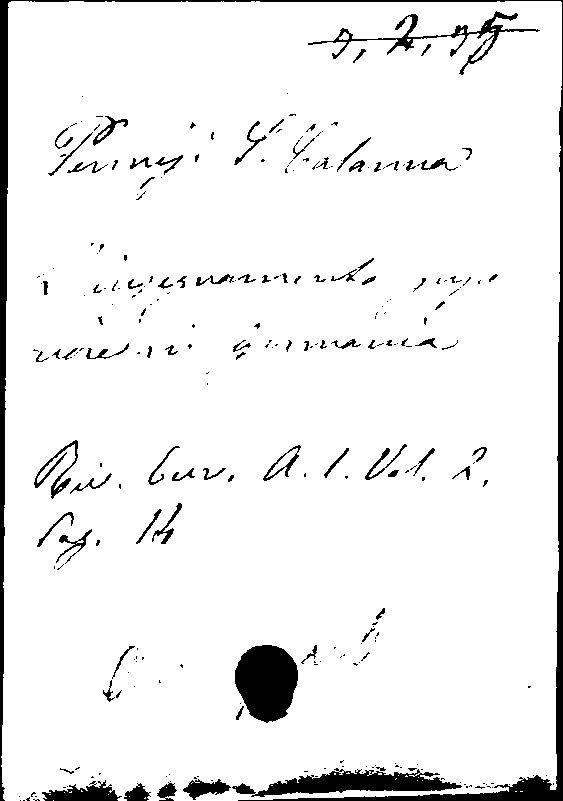 3, 2, 35
S. Calanna
L'insegnamento supe
riore in Germania
Riv. Eur. A. 1. Vol. 2.
Pag. 14